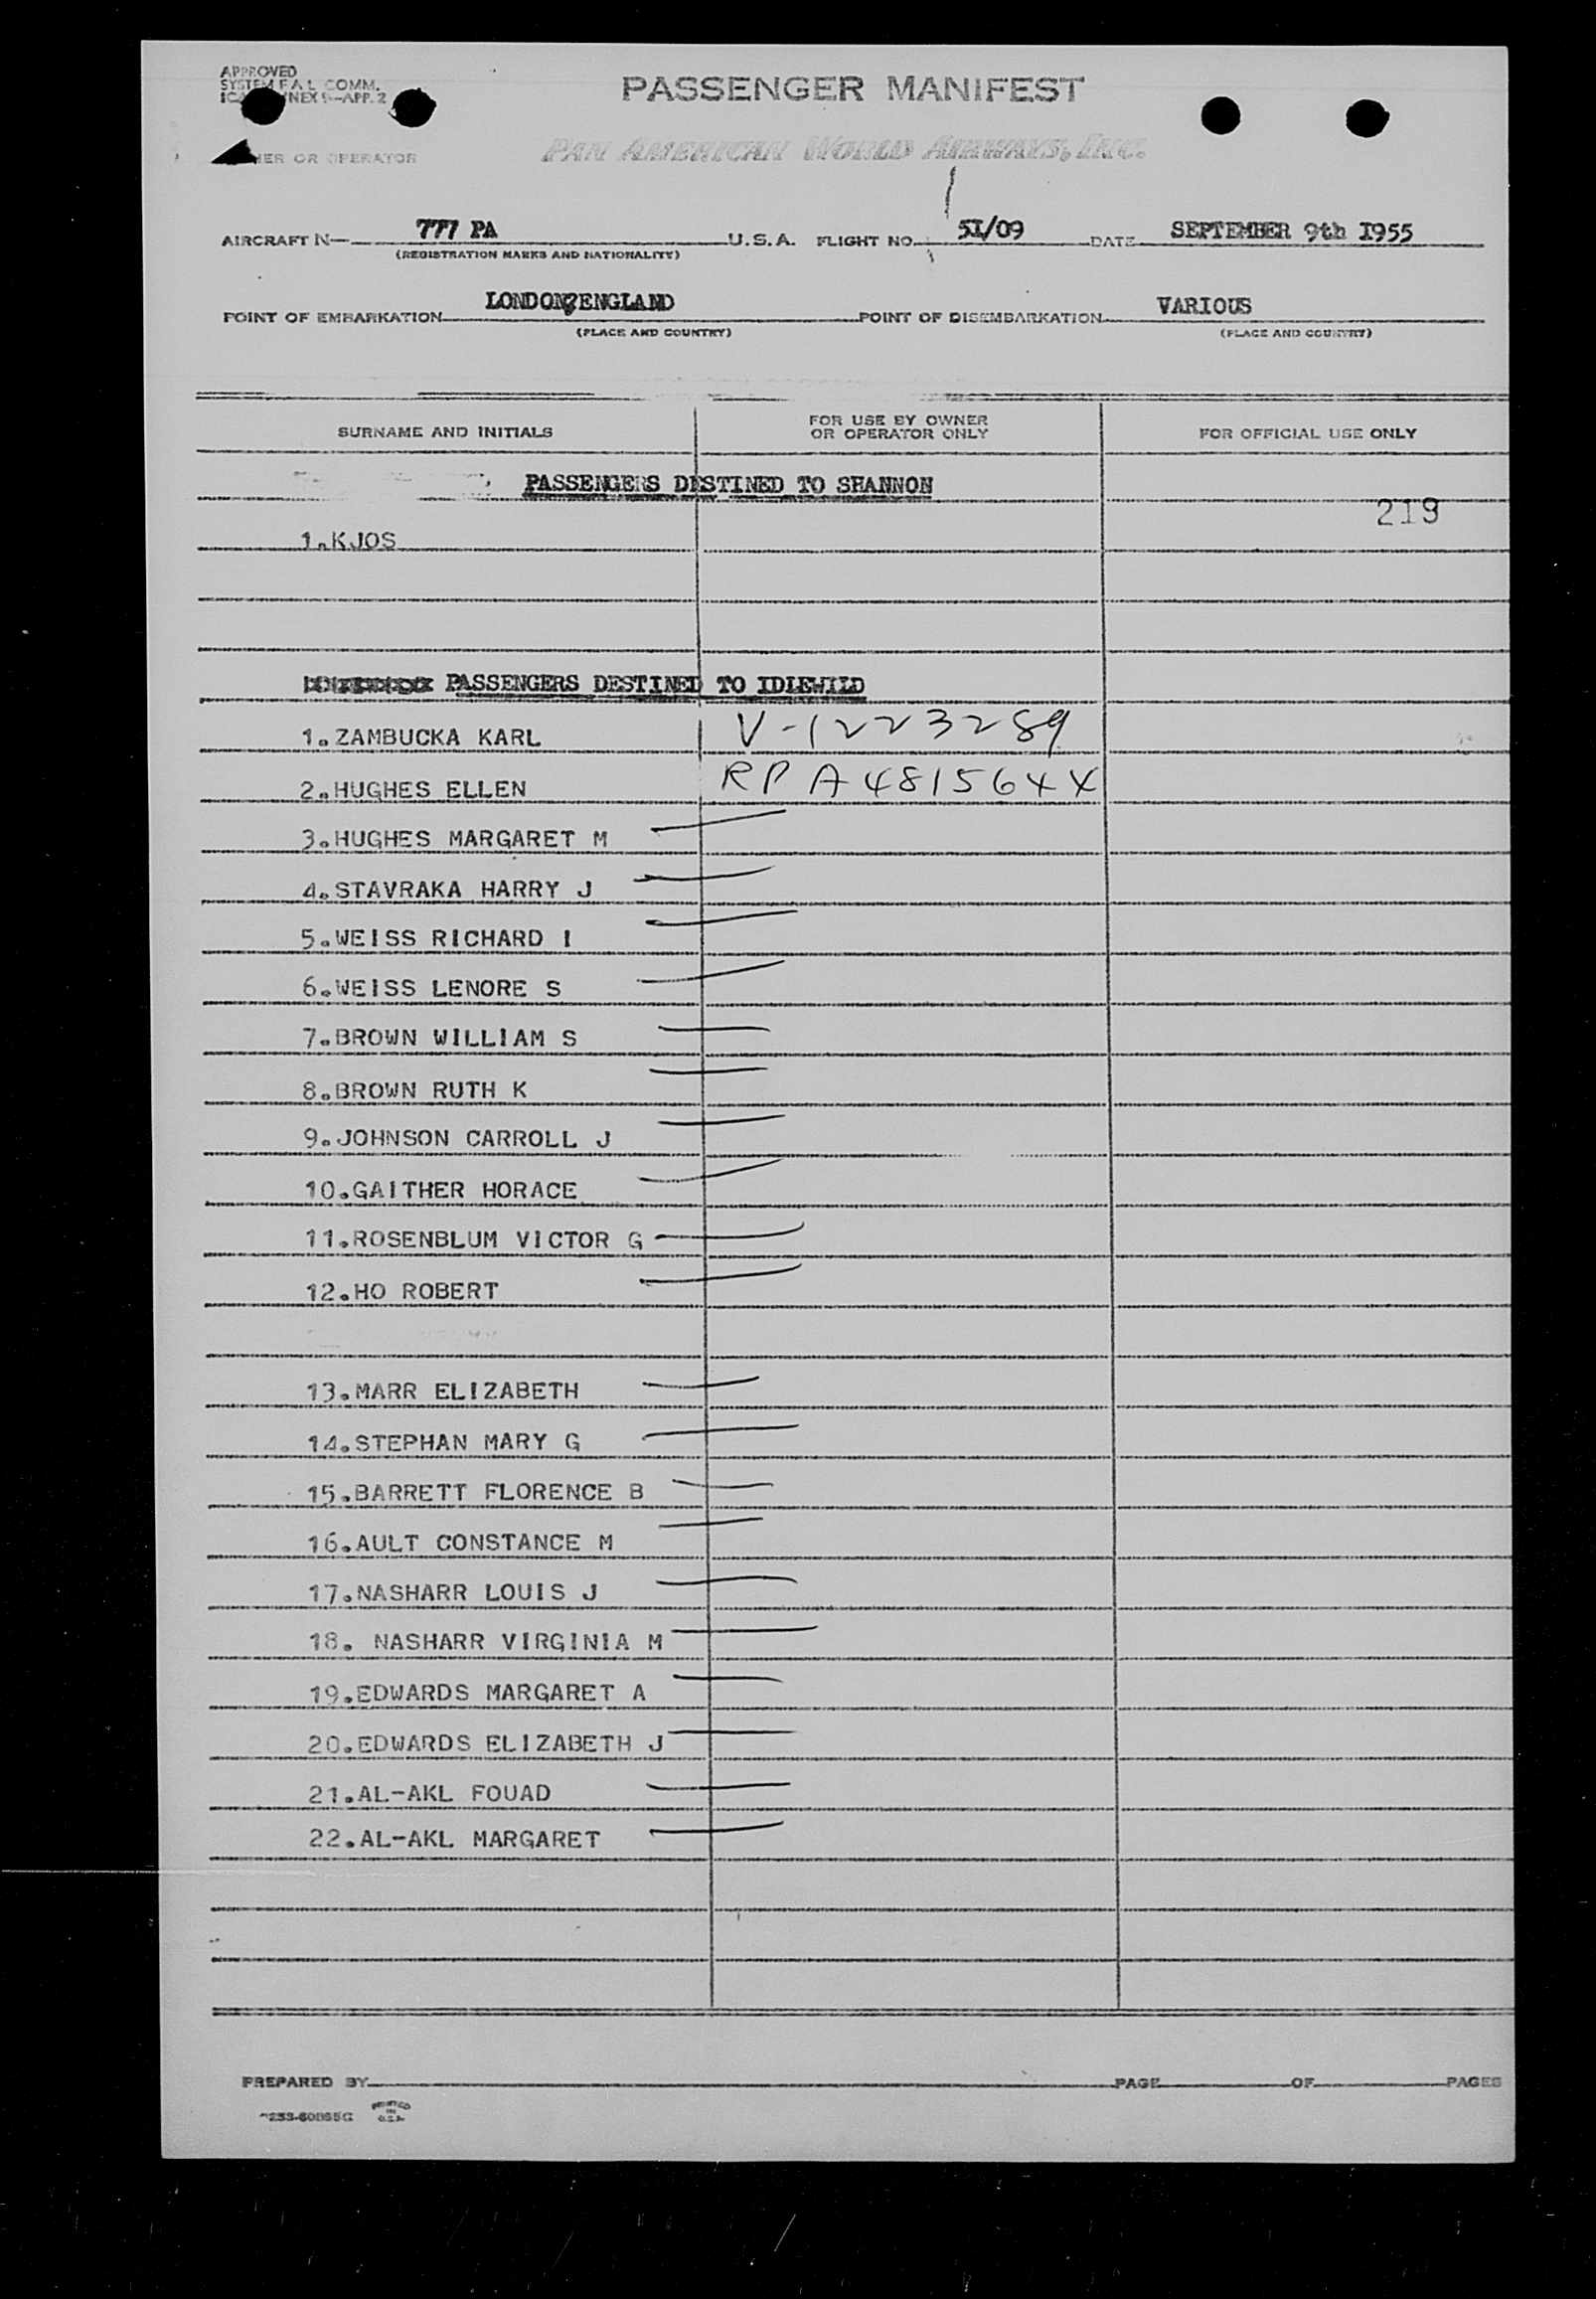 APPROVED
SYSTEM F A L COMM.
ANNEX 9—APP. 2
PASSENGER MANIFEST
OWNER OR OPERATOR
PAN AMERICAN WORLD AIRWAYS, INC.
AIRCRAFT N— 777 PA U.S.A. FLIGHT NO. 51/09 DATE SEPTEMBER 9th 1955
(REGISTRATION MARKS AND NATIONALITY)
POINT OF EMBARKATION LONDON,ENGLAND POINT OF DISEMBARKATION VARIOUS
(PLACE AND COUNTRY) (PLACE AND COUNTRY)
SURNAME AND INITIALS
FOR USE BY OWNER
OR OPERATOR ONLY
FOR OFFICIAL USE ONLY
PASSENGERS DESTINED TO SHANNON
219
1.KJOS
PASSENGERS DESTINED TO IDLEWILD
1.ZAMBUCKA KARL V-1223289
2.HUGHES ELLEN RP A4815644
3.HUGHES MARGARET M
4.STAVRAKA HARRY J
5.WEISS RICHARD I
6.WEISS LENORE S
7.BROWN WILLIAM S
8.BROWN RUTH K
9.JOHNSON CARROLL J
10.GAITHER HORACE
11.ROSENBLUM VICTOR G
12.HO ROBERT
13.MARR ELIZABETH
14.STEPHAN MARY G
15.BARRETT FLORENCE B
16.AULT CONSTANCE M
17.NASHARR LOUIS J
18. NASHARR VIRGINIA M
19.EDWARDS MARGARET A
20.EDWARDS ELIZABETH J
21.AL-AKL FOUAD
22.AL-AKL MARGARET
PREPARED BY PAGE OF PAGES
PRINTED
IN
U.S.A.